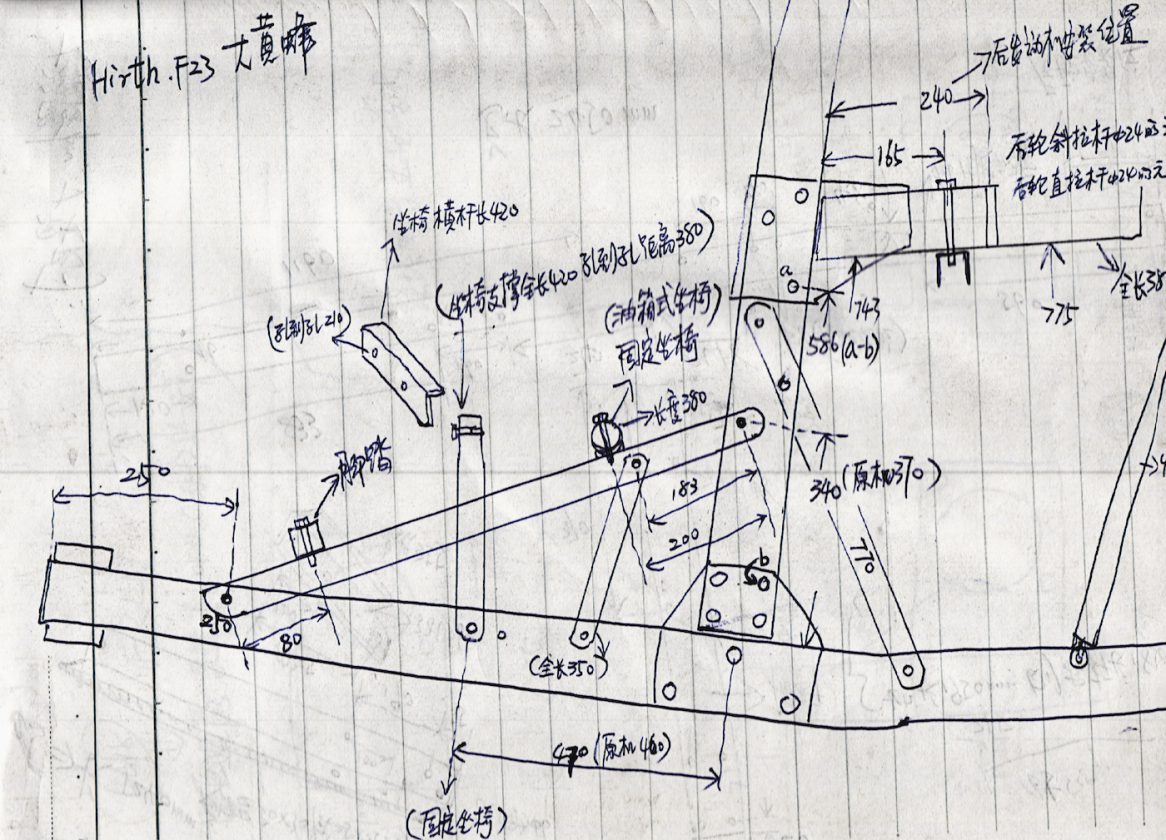 Hirth.F23 大黄蜂
后发动机安装位置
240
165
后轮斜拉杆φ24的
后轮直拉杆φ24的元
坐椅横杆长420
(坐椅支撑全长420 孔到孔距离380)
(孔到孔210)
(油箱式坐椅)
固定坐椅
长度380
a
743
586(a-b)
775
全长38
脚踏
250
183
200
340(原机370)
770
b
250
80
(全长350)
470(原机460)
(固定坐椅)